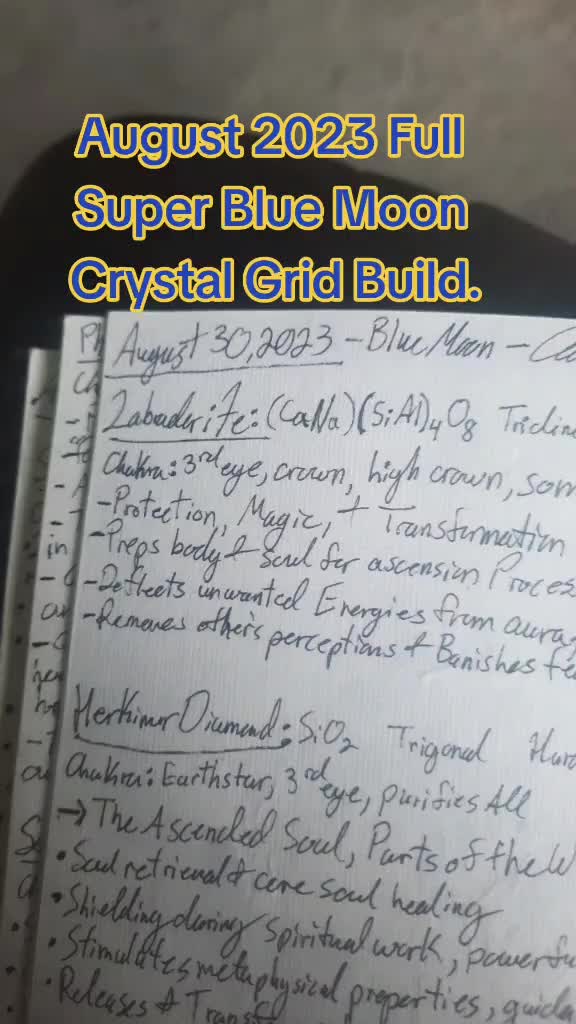 August 2023 Full
Super Blue Moon
Crystal Grid Build.
August 30, 2023 - Blue Moon -
Labradorite: (CaNa)(SiAl)4O8 Triclin
Chakra: 3rd eye, crown, high crown, som
- Protection, Magic, + Transformation
- Preps body + Soul for ascension Proces
- Deflects unwanted Energies from aura
- Removes other's perceptions + Banishes fe
Herkimer Diamond: SiO2 Trigonal Hard
Chakra: Earthstar, 3rd eye, purifies All
→ The Ascended Soul, Parts of the W
• Soul retrieval & core soul healing
• Shielding during Spiritual work, powerfu
• Stimulates metaphysical properties, guida
• Releases & Transf